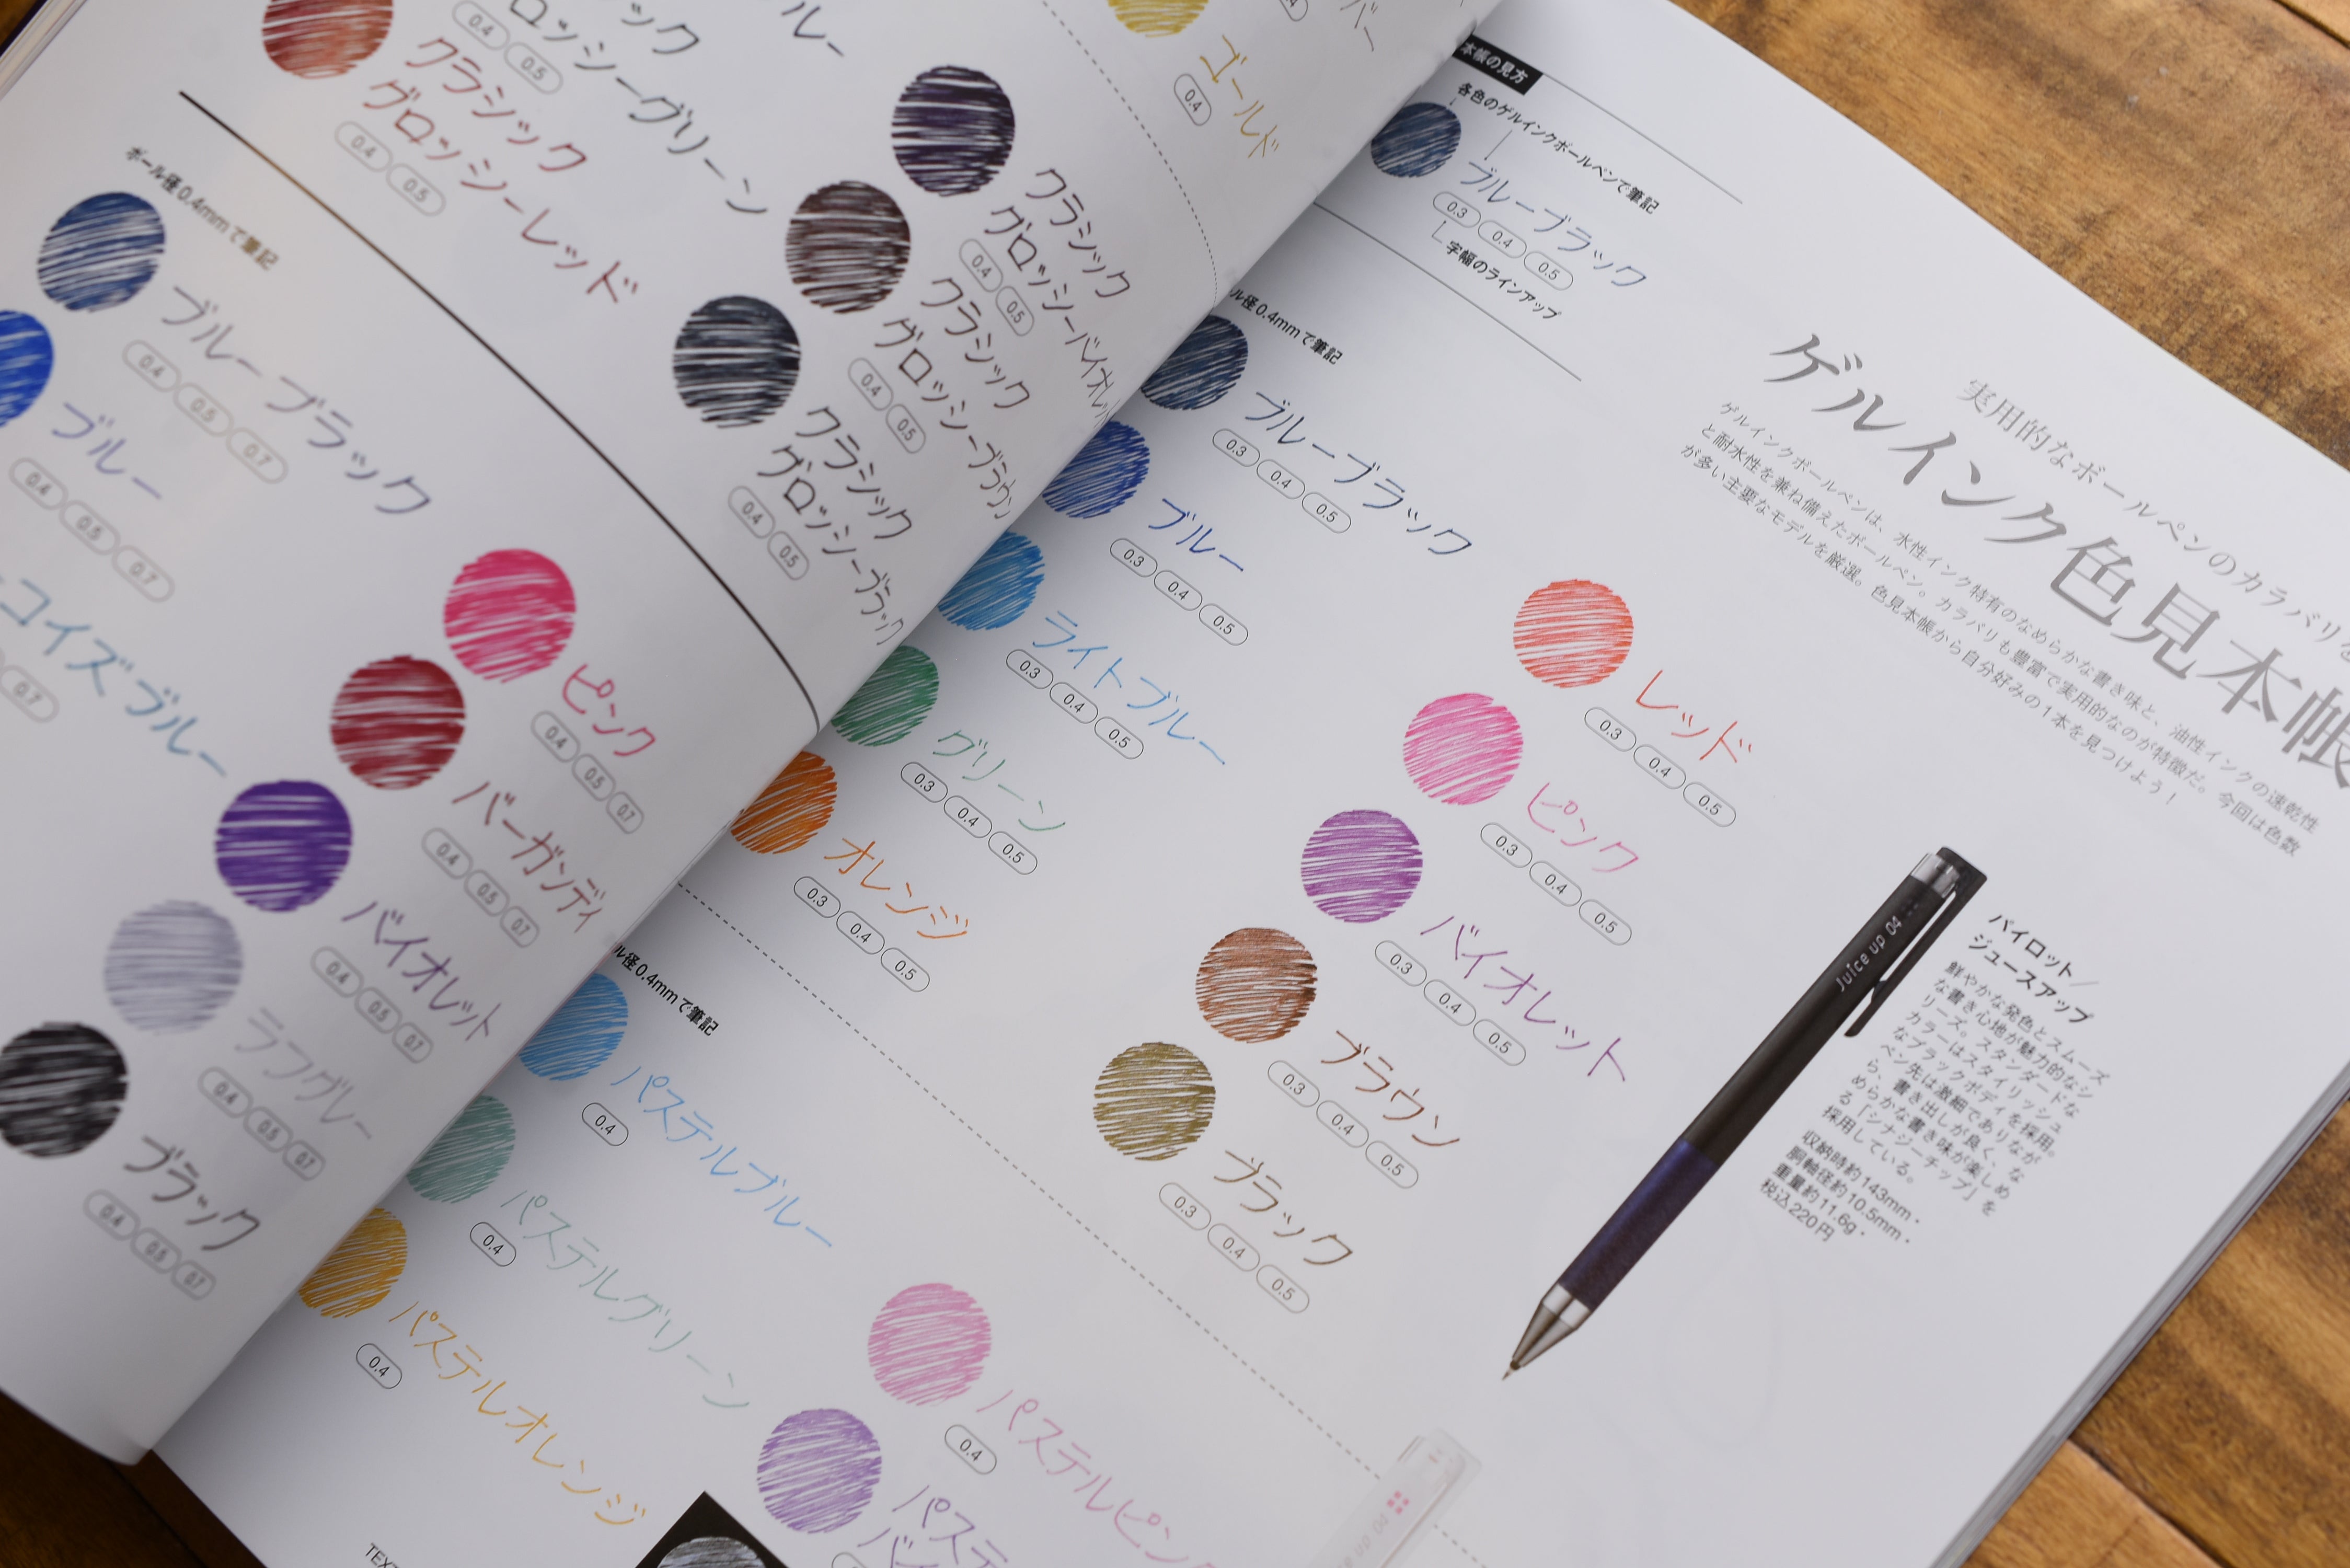 実用的なボールペンのカラバリを
ゲルインク色見本帳
ゲルインクボールペンは、水性インク特有のなめらかな書き味と、油性インクの速乾性
と耐水性を兼ね備えたボールペン。カラバリも豊富で実用的なのが特徴だ。今回は色数
が多い主要なモデルを厳選。色見本帳から自分好みの1本を見つけよう！
本帳の見方
各色のゲルインクボールペンで筆記
ブルーブラック
0.3 0.4 0.5
字幅のラインアップ
ル径0.4mmで筆記
ブルーブラック
0.3 0.4 0.5
ブルー
0.3 0.4 0.5
ライトブルー
0.3 0.4 0.5
グリーン
0.3 0.4 0.5
オレンジ
0.3 0.4 0.5
レッド
0.3 0.4 0.5
ピンク
0.3 0.4 0.5
バイオレット
0.3 0.4 0.5
ブラウン
0.3 0.4 0.5
ブラック
0.3 0.4 0.5
Juice up 04
パイロット／
ジュースアップ
鮮やかな発色とスムーズ
な書き心地が魅力的なシ
リーズ。スタンダードな
カラーはスタイリッシュ
なブラックボディを採用。
ペン先は激細でありなが
ら、書き出しが良く、な
めらかな書き味が楽しめ
る「シナジーチップ」を
採用している。
収納時約143mm・
胴軸径約10.5mm・
重量約11.6g・
税込220円
ル径0.4mmで筆記
パステルブルー
0.4
パステルグリーン
0.4
パステルオレンジ
0.4
パステルピン
0.4
パステ
バ
up 04
TEX
ルー
ック
ロッシーグリーン
0.4 0.5
クラシック
グロッシーレッド
0.4 0.5
クラシック
グロッシーバイオレッ
0.4 0.5
クラシック
グロッシーブラウン
0.4 0.5
クラシック
グロッシーブラック
0.4 0.5
バー
ゴールド
0.4
ボール径0.4mmで筆記
ブルーブラック
0.4 0.5 0.7
ブルー
0.4 0.5 0.7
コイズブルー
0.7
ピンク
0.4 0.5 0.7
バーガンディ
0.4 0.5 0.7
バイオレット
0.4 0.5 0.7
ラフグレー
0.4 0.5 0.7
ブラック
0.4 0.5 0.7